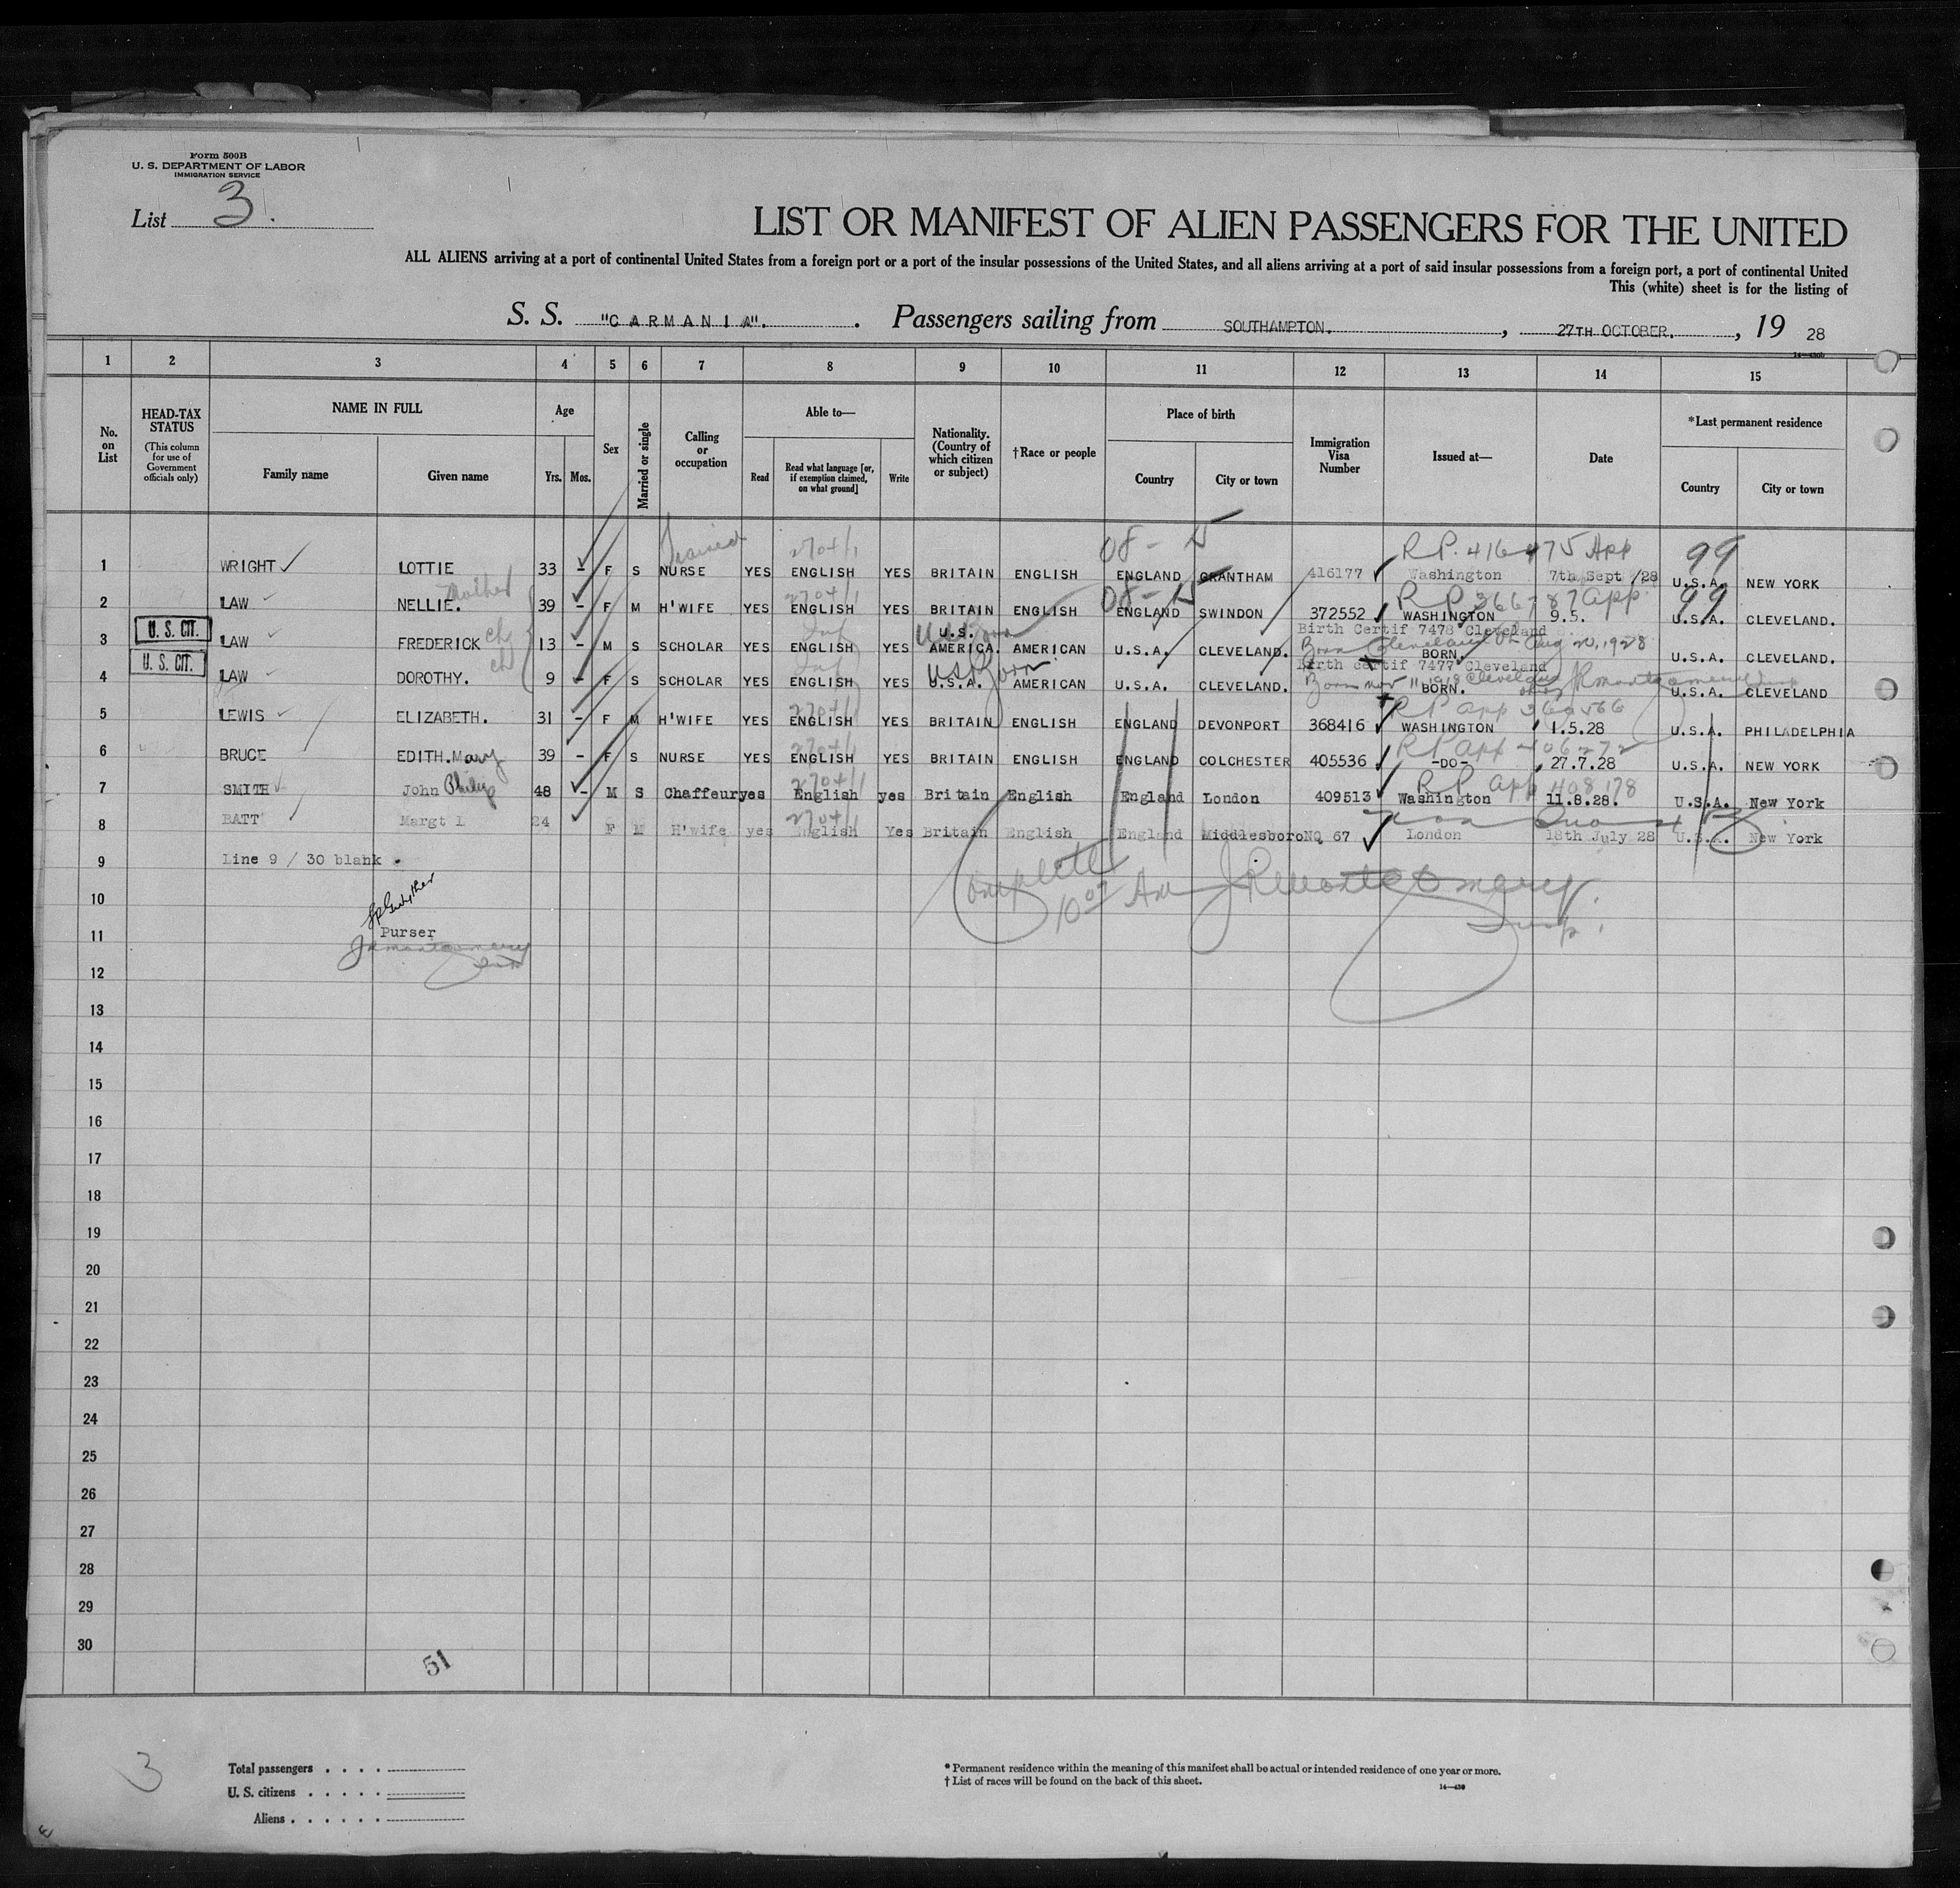 Form 500B
U. S. DEPARTMENT OF LABOR
IMMIGRATION SERVICE
List 3.
LIST OR MANIFEST OF ALIEN PASSENGERS FOR THE UNITED
ALL ALIENS arriving at a port of continental United States from a foreign port or a port of the insular possessions of the United States, and all aliens arriving at a port of said insular possessions from a foreign port, a port of continental United
This (white) sheet is for the listing of
S. S. "CARMANIA". Passengers sailing from SOUTHAMPTON. , 27TH OCTOBER. , 19 28
1 2 3 4 5 6 7 8 9 10 11 12 13 14 15
No. on List
HEAD-TAX STATUS
(This column for use of Government officials only)
NAME IN FULL
Family name Given name
Age
Yrs. Mos.
Sex
Married or single
Calling or occupation
Able to—
Read
Read what language [or, if exemption claimed, on what ground]
Write
Nationality. (Country of which citizen or subject)
†Race or people
Place of birth
Country City or town
Immigration Visa Number
Issued at—
Date
*Last permanent residence
Country City or town
08 - R.P. 416475 App 99
1 WRIGHT LOTTIE 33 - F S NURSE YES ENGLISH YES BRITAIN ENGLISH ENGLAND GRANTHAM 416177 Washington 7th Sept /28 U.S.A. NEW YORK
Mother 08 - R P 366787 App 99
2 LAW NELLIE. 39 - F M H'WIFE YES ENGLISH YES BRITAIN ENGLISH ENGLAND SWINDON 372552 WASHINGTON 9.5. U.S.A. CLEVELAND.
U. S. CIT. ch U.S. Born Birth Certif 7478 Cleveland
3 LAW FREDERICK 13 - M S SCHOLAR YES ENGLISH YES U.S. AMERICA. AMERICAN U.S.A. CLEVELAND. Born Cleveland Oh Aug 20, 1928 BORN. U.S.A. CLEVELAND.
U. S. CIT. ch U.S. Born Birth certif 7477 Cleveland
4 LAW DOROTHY. 9 - F S SCHOLAR YES ENGLISH YES U.S.A. AMERICAN U.S.A. CLEVELAND. Born Nov 1918 Cleveland BORN. U.S.A. CLEVELAND
R P app
5 LEWIS ELIZABETH. 31 - F M H'WIFE YES ENGLISH YES BRITAIN ENGLISH ENGLAND DEVONPORT 368416 WASHINGTON 1.5.28 U.S.A. PHILADELPHIA
R P app 406272
6 BRUCE EDITH. Mary 39 - F S NURSE YES ENGLISH YES BRITAIN ENGLISH ENGLAND COLCHESTER 405536 -DO- 27.7.28 U.S.A. NEW YORK
R P app 408178
7 SMITH John Philip 48 - M S Chaffeur yes English yes Britain English England London 409513 Washington 11.8.28. U.S.A. New York
8 BATT Margt L 24 F M H'wife yes English Yes Britain English England Middlesboro NQ 67 London 18th July 28 U.S.A. New York
9 Line 9 / 30 blank
10
Complete 10 07 AM
11 Purser
12
13
14
15
16
17
18
19
20
21
22
23
24
25
26
27
28
29
30
51
3
Total passengers . . . .
U. S. citizens . . . . .
Aliens . . . . . .
* Permanent residence within the meaning of this manifest shall be actual or intended residence of one year or more.
† List of races will be found on the back of this sheet.
14—430